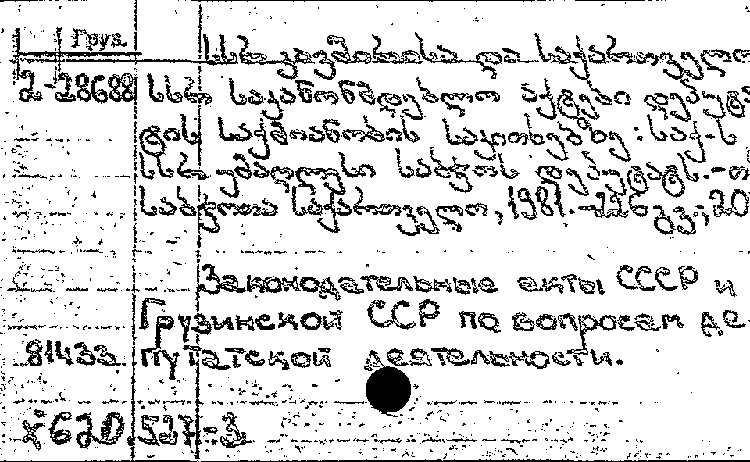 Груз.
სსრ კავშირისა და საქართველო
2-28688 სსრ საკანონმდებლო აქტები დეპუტა
ტის საქმიანობის საკითხებზე: საქ-ს
სსრ უმაღლესი საბჭოს დეპუტატს.-თ
საბჭოთა საქართველო, 1981.-226 გვ.; 20
Законодательные акты СССР и
Грузинской ССР по вопросам де-
81433 путатской деятельности.
620.527:3